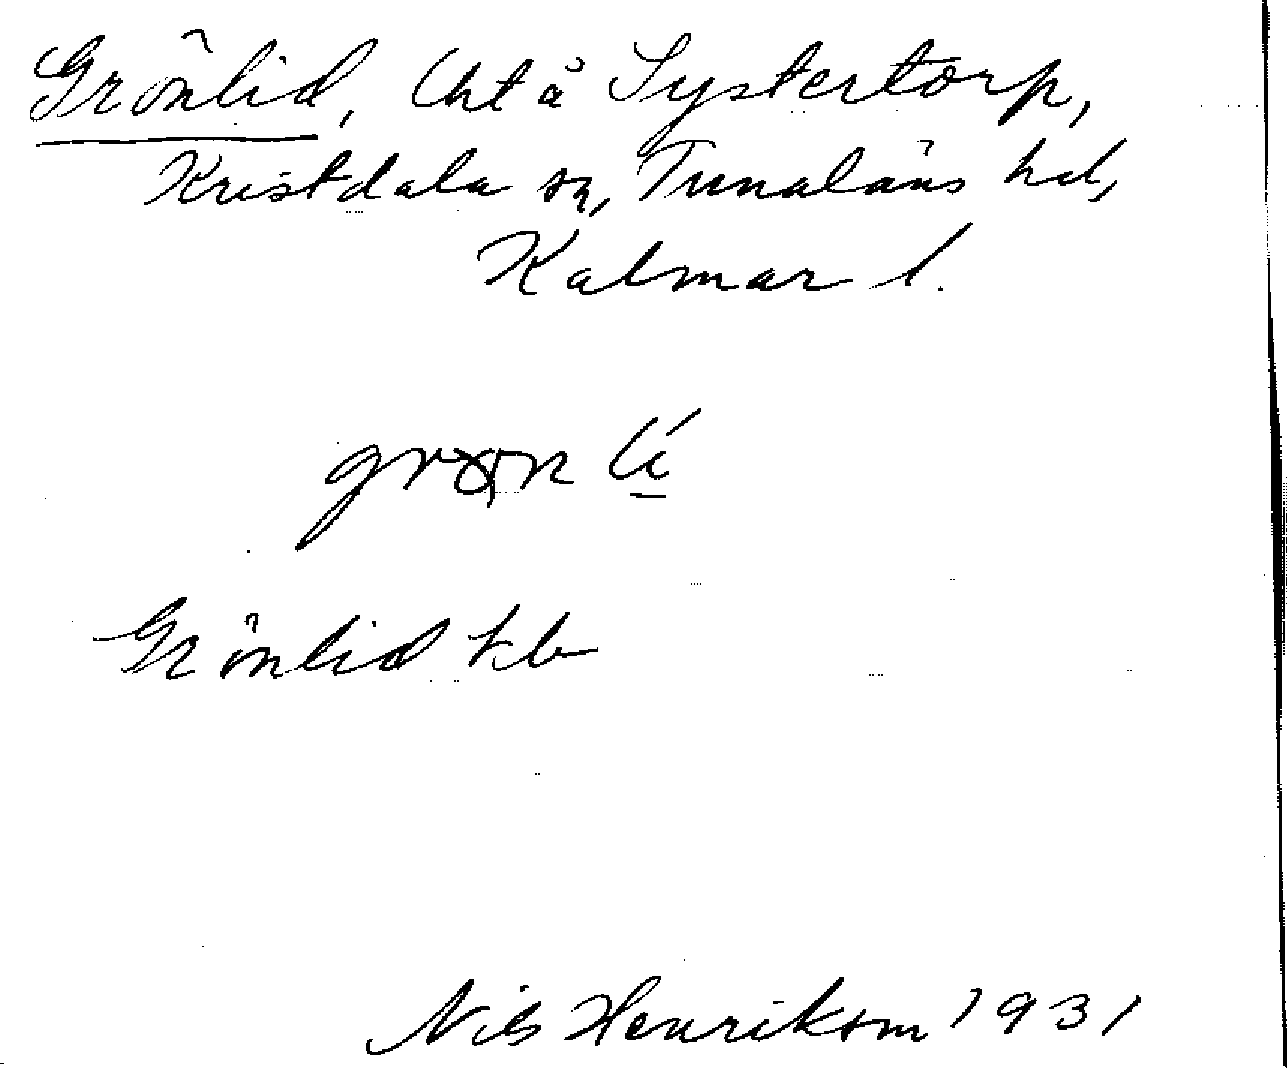 Grönlid, Lht å Systertorp,
Kristdala sn, Tunaläns hd,
Kalmar l.
Grönlid kb
Nils Henrikson 1931